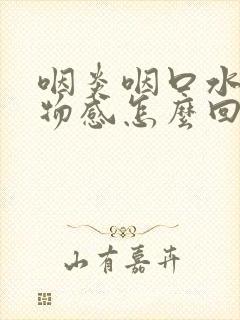 咽炎咽口水
物感怎麼回
山有嘉卉